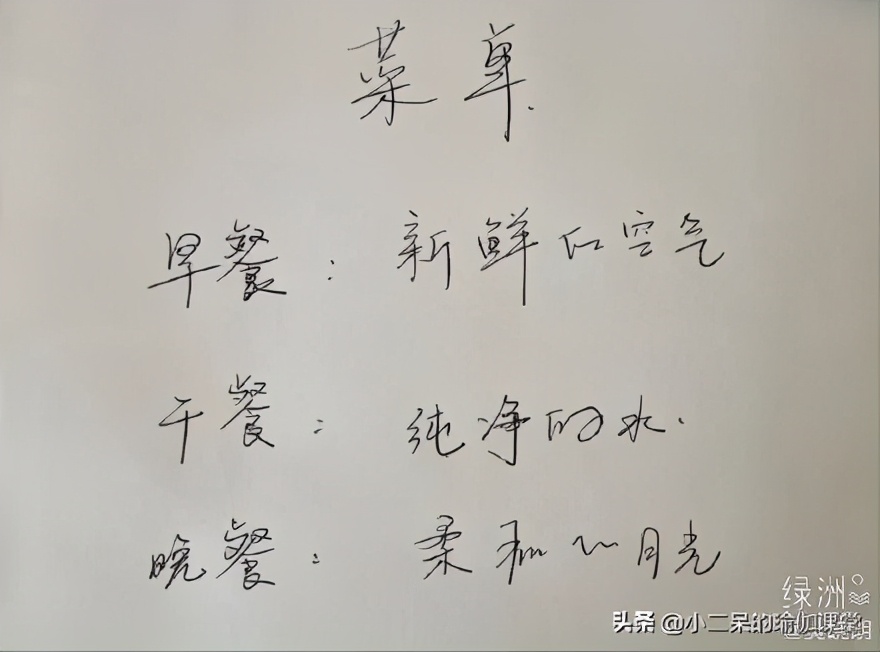 菜单.
早餐：新鲜的空气
午餐：纯净的水.
晚餐：柔和的月光
绿洲
头条 @小二呆的瑜伽课堂